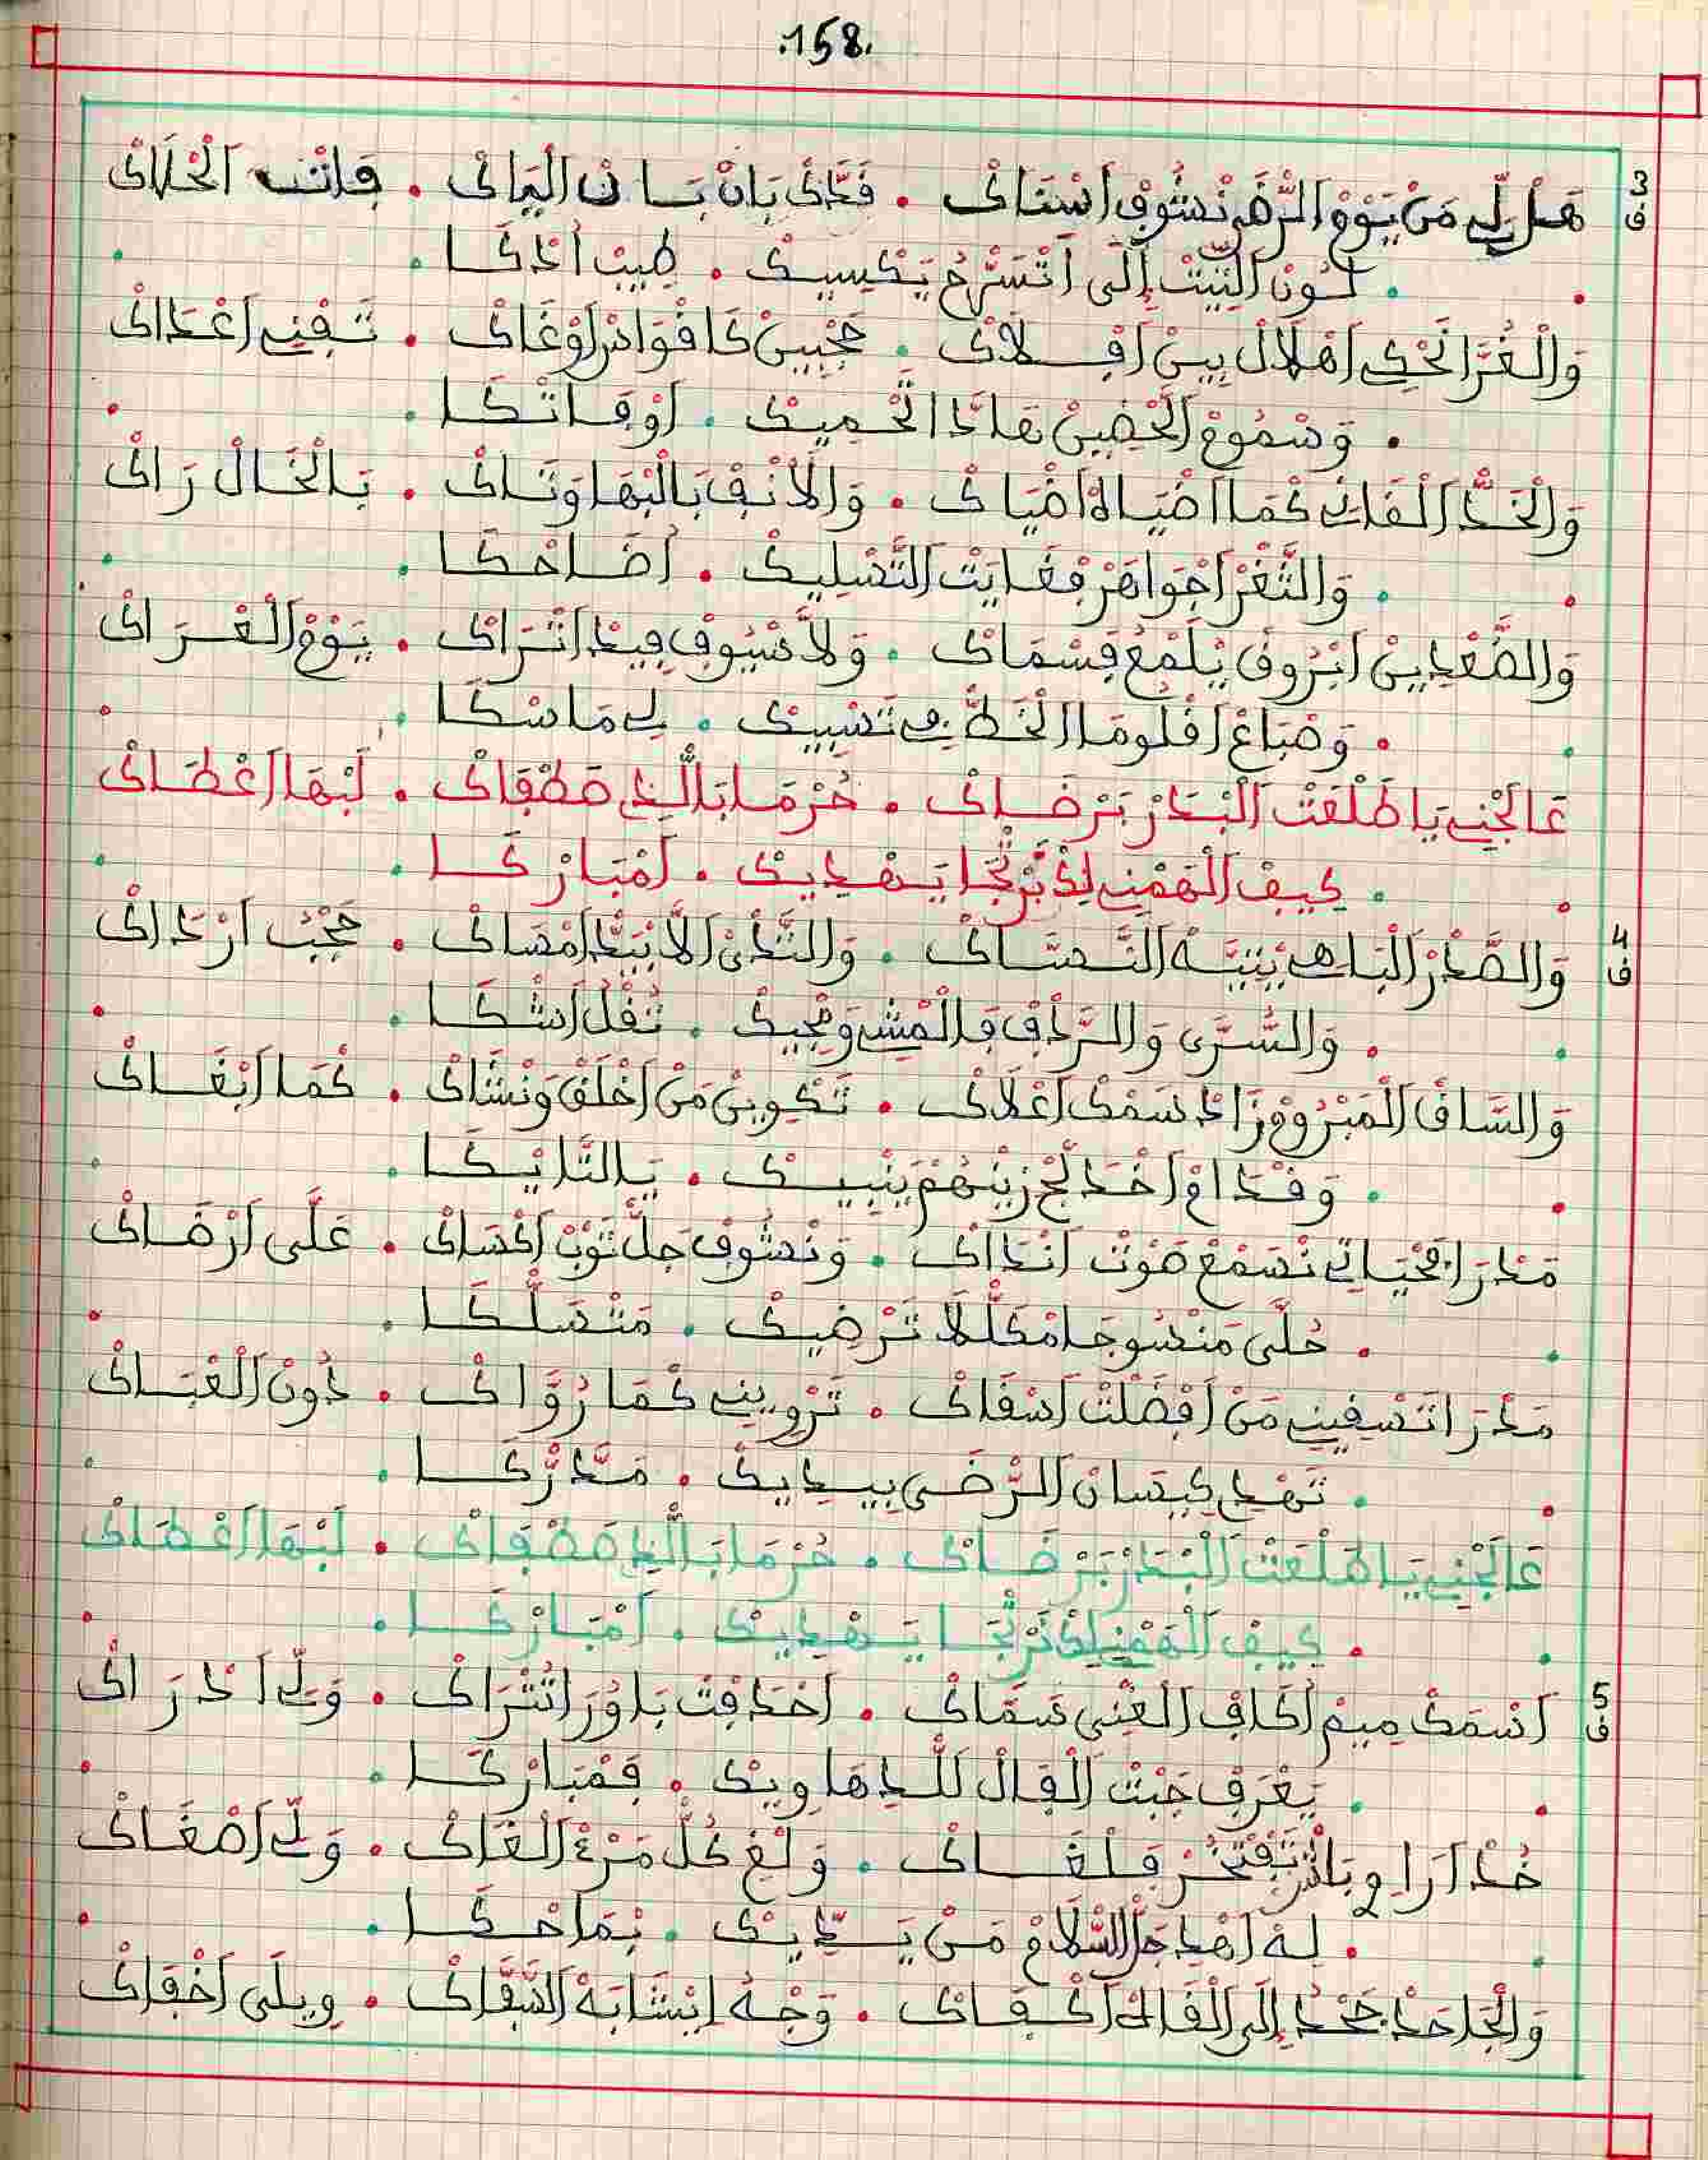 .158.
3 ف هَلْ لِي مَنْ يَوْمْ الزّْهَرْ نْشُوفْ اسْنَاكْ . فَدَّكْ بَانْ بَسَانْ الْبَانْ . فَاتْتْ الْحْلَاكْ
. لَوْنْ الْبَنْتْ إِلَى اتْسَرَّحْ يَكْسِيكْ . طِيبْ اذْكَا .
وَالْغُرَّا تَحْكِي اهْلَالْ بِينْ افْلَاكْ . حَجْبِينْ كَافْوَادَرْ اوْغَاكْ . تَفْنِي اعْدَاكْ
. وَسْمُوعْ الْحْضِينْ هَادَا الْحْمِيكْ . اوْقَاتْكَا .
وَالْخَدّْ الْقَانِي كْمَا اضْيَاهْ اضْيَاكْ . وَالْانْفْ بَالْبْهَا وَتَاكْ . بَالْخَالْ رَاكْ
. وَالثَّغْرْ اجْوَاهَرْ فْغَايَتْ التَّسْلِيكْ . اضَاحْكَا .
وَالصَّعْدِينْ ابْرُوقْ يَلْمَعْ فَسْمَاكْ . وَلَا سْيُوفْ فِيدْ اتْرَاكْ . يَوْمْ الْعْرَاكْ
. وَصْبَاعْ اقْلُومَا الْخَطّْ فِي تَسْبِيكْ . لِي مَاسْكَا .
عَالَجْنِي يَا طَلْعَتْ الْبْدَرْ بَرْضَاكْ . حُرْمَا بَالَّذِي صَطْفَاكْ . لَبْهَا اعْطَاكْ
. كِيفْ الْهَمْنِي لِكْ نَرْتْجَا يَهْدِيكْ . امْبَارْكَا .
4 ف وَالصَّدْرْ الْبَاهِي يْتِيَّهْ النَّسَّاكْ . وَالنَّهْدْ الَّا يْبَدّْ امْسَاكْ . حَجْبْ ارْدَاكْ
. وَالسُّرَّى وَالرّْدَفْ فَالْمْشِي وَمْجِيكْ . تُقْلْ اشْكَا .
وَالسَّاقْ الْمَبْرُومْ زَادْ سَمْكْ اعْلَاكْ . تَكْوِينْ مَنْ اخْلَقْ وَنْشَاكْ . كْمَا ابْغَاكْ
. وَقْدَامْ اخْدَلَّجْ زِينْهُمْ يَنْبِيكْ . يَالتَّايْكَا .
مَدْرَا فَحْيَاتِي نَسْمَعْ صَوْتْ انْدَاكْ . وَنْشُوفْ جَلّْ ثَوْبْ اكْسَاكْ . عَلَى ارْضَاكْ
. حُلَّى مَنْسُوجَا مْكَلّْلَا تَرْضِيكْ . مَتْسَلّْكَا .
مَدْرَا تَسْقِينِي مَنْ افْضَلْتْ اسْقَاكْ . تَرْوِينِي كْمَا رْوَاكْ . دُونْ الْعْبَاكْ
. تَهْدِي كِيسَانْ الرّْضَى بِيدِيكْ . مَدَّرْكَا .
عَالَجْنِي يَا طَلْعَتْ الْبْدَرْ بَرْضَاكْ . حُرْمَا بَالَّذِي صَطْفَاكْ . لَبْهَا اعْطَاكْ
. كِيفْ الْهَمْنِي لِكْ نَرْتْجَا يَهْدِيكْ . امْبَارْكَا .
5 ف اسْمَكْ مِيمْ اكَافْ الْغْنِي سَمَّاكْ . احْدَفْتْ بَاوُرَاتْرَاكْ . وَلِّي ادْرَاكْ
. يَعْرَفْ جَبْتْ الْفَالْ لَلدّْهَا وِيكْ . فَمْبَارْكَا .
خُدْ ارَاوِي بَاشْ تَفْتْخَرْ فَلْغَاكْ . وَلْغِي كُلّْ مَنْ الْغَاكْ . وَلِّي اصْغَاكْ
. لِهْ اهْدِي جَلّْ السّْلَامْ مَنْ يَدِّيكْ . بْمَاحْكَا .
وَالْجَاحَدْ جَحْدْ إِلَى الْقَاكْ اكْفَاكْ . وَجْهْ ابْشَابَهْ السّْفَّاكْ . وِيلَى اخْفَاكْ